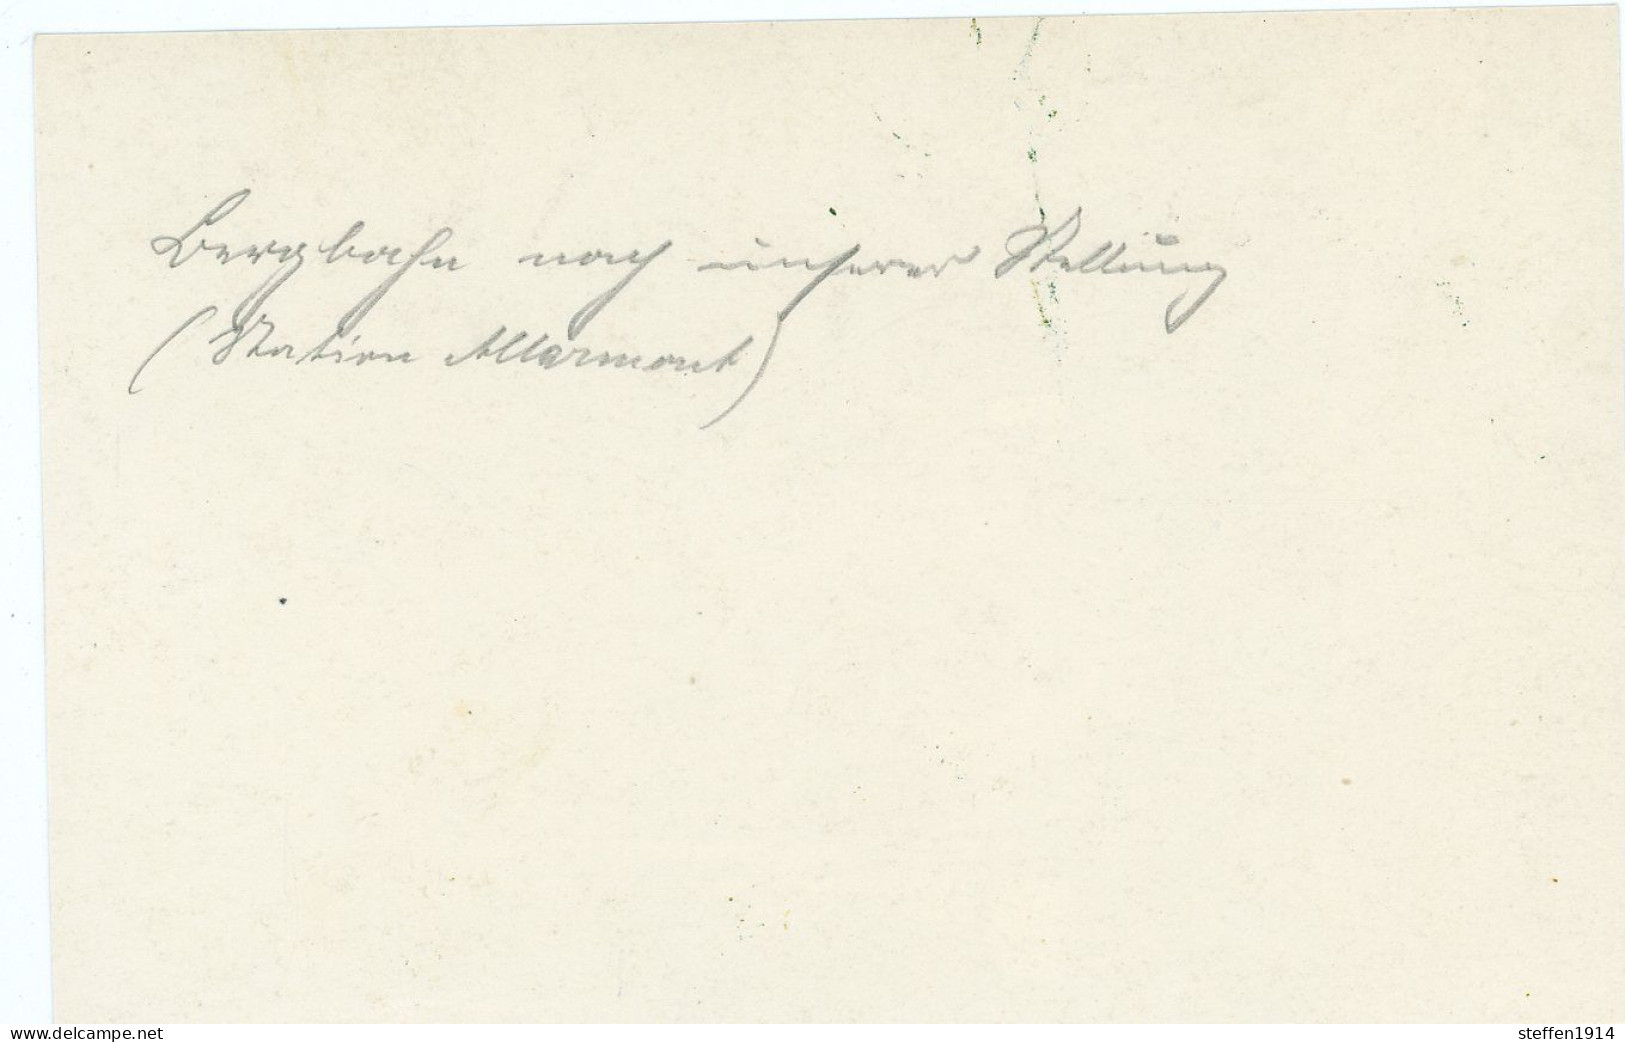 Bergbahn nach unserer Stellung
(Station Allarmont)
www.delcampe.net
steffen1914